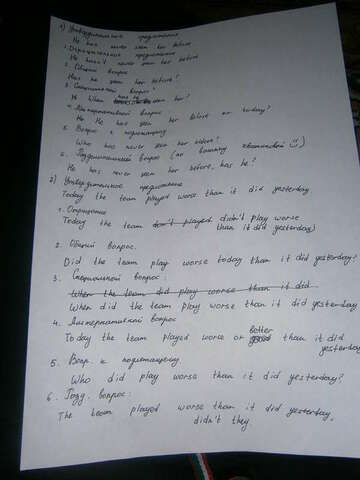 1) Утвердительное предложение
He has never seen her before
1. Отрицательное предложение
He hasn't never seen her before
2. Общий вопрос
Has he seen her before?
3. Специальный вопрос
When has he seen her?
4. Альтернативный вопрос
He has seen her before or today?
5. Вопрос к подлежащему
Who has never seen her before?
6. Разделительный вопрос (по
He has never seen her before, has he?
2) Утвердительное предложение
Today the team played worse than it did yesterday
1. Отрицание
Today the team don't played didn't play worse
than it did yesterday)
2. Общий вопрос.
Did the team play worse today than it did yesterday?
3. Специальной вопрос:
When the team did play worse than it did
When did the team play worse than it did yesterday
4. Альтернативный вопрос
better
Today the team played worse or good than it did
yesterday
5. Вопр. к подлежащему
Who did play worse than it did yesterday?
6. Разд. вопрос:
The team played worse than it did yesterday,
didn't they